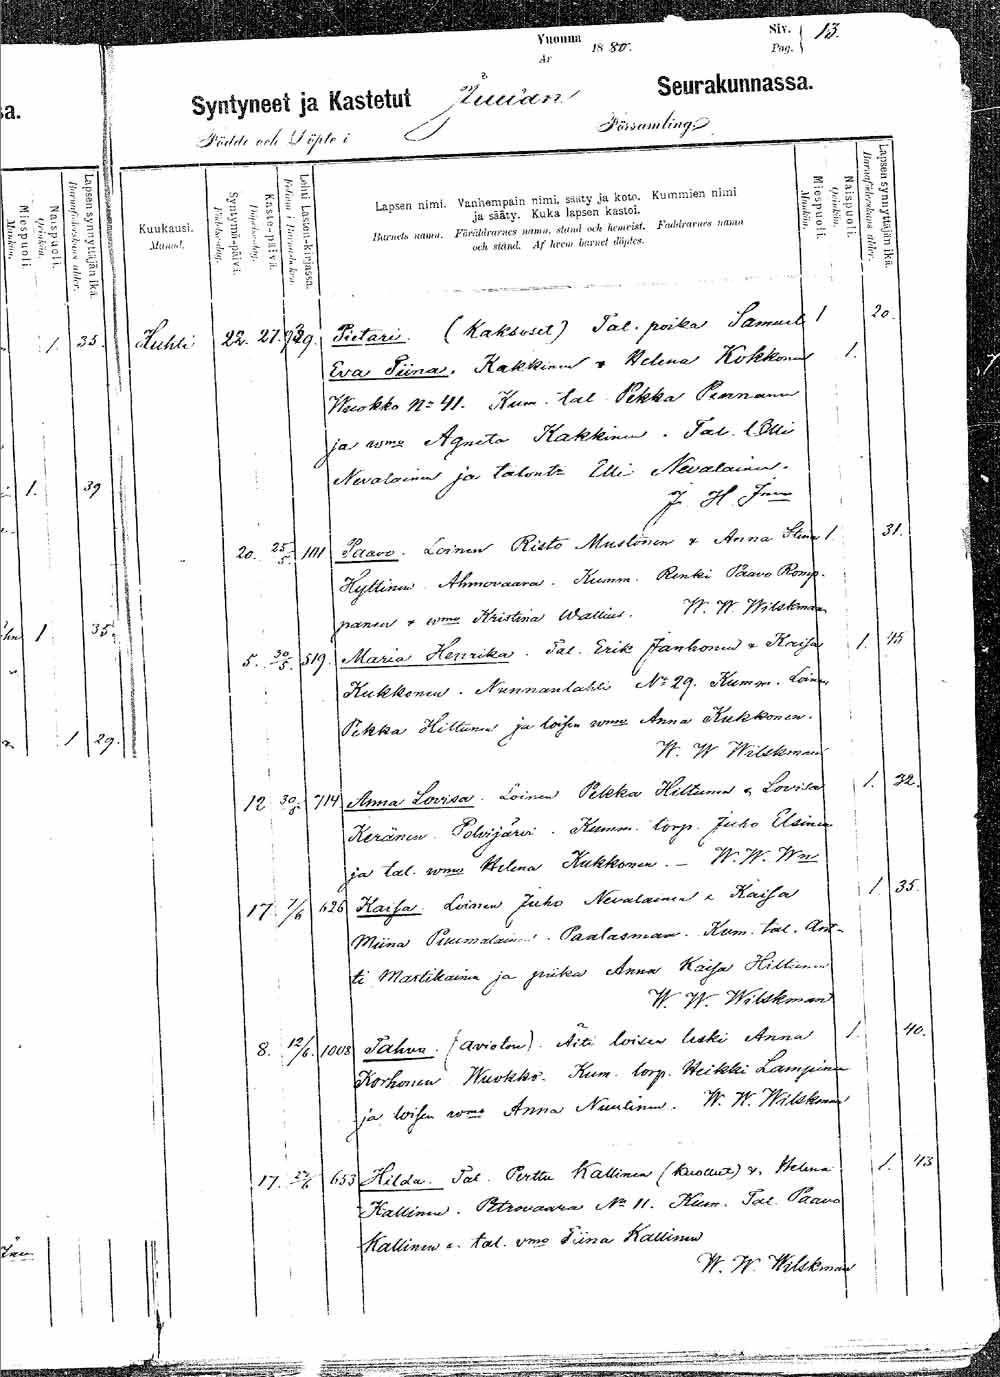 Vuonna
År
1880.
Siv.
Pag.
13.
sa.
Syntyneet ja Kastetut Juuan Seurakunnassa.
Födde och Döpte i Församling.
Miespuoli.
Mankön.
Naispuoli.
Qvinkön.
Lapsen synnyttäjän ikä.
Barnaföderskans ålder.
Kuukausi.
Månad.
Syntymä-päivä.
Födelse-dag.
Kaste-päivä.
Döpelse-dag.
Lehti Lasten-kirjassa.
Folium i Barnaboken.
Lapsen nimi. Vanhempain nimi, sääty ja koto. Kummien nimi
ja sääty. Kuka lapsen kastoi.
Barnets namn. Föräldrarnes namn, stånd och hemvist. Faddrarnes namn
och stånd. Af hvem barnet döptes.
Miespuoli.
Mankön.
Naispuoli.
Qvinkön.
Lapsen synnyttäjän ikä.
Barnaföderskans ålder.
1. 35.
1. 39
1 35.
1 29.
Huhti 22. 27. Pietari. (Kaksoset) Tal. poika Samuel 1 20.
Eva Tiina. Kakkinen & Helena Kokkonen 1.
Wuokko No 41. Kum. tal. Pekka Pennanen
ja vmo Agneta Kakkinen. Tal. Olli
Nevalainen ja talont. Elli Nevalainen.
J. H.
20. 25/5 101 Paavo. Loinen Risto Mustonen & Anna Stina 1 31.
Hyttinen Ahmovaara. Kumm. Renki Paavo Romp-
panen & vmo Kristina Wallius. W. W. Wilskman
5. 30/5. 519. Maria Henrika. Tal. Erik Janhonen & Kaisa 1. 45
Kukkonen. Nunnanlahti No 29. Kumm. Loinen
Pekka Hiltunen ja loisen vmo Anna Kukkonen.
W. W Wilskman
12 30/5 714 Anna Lovisa. Loinen Pekka Hiltunen & Lovisa 1. 32.
Keränen. Polvijärvi. Kumm. torp. Juho Elsinen
ja tal. vmo Helena Kukkonen. — W. W. Wn
17. 7/6 626 Kaisa. Loinen Juho Nevalainen & Kaisa 1 35.
Miina Puumalainen. Paalasmaa. Kum. tal. Ant-
ti Martikainen ja piika Anna Kaisa Hiltunen
W. W. Wilskman
8. 12/6. 1008 Tahvo. (avioton). Äiti loisen leski Anna 1. 40.
Korhonen Wuokko. Kum. torp. Heikki Lampinen
ja loisen vmo Anna Nuutinen. W. W. Wilskman
17. 27/6 653 Hilda. Tal. Perttu Kallinen (kuollut) & Helena 1. 43
Kallinen. Petrovaara No 11. Kum. Tal. Paavo
Kallinen & tal. vmo Tiina Kallinen
W. W. Wilskman